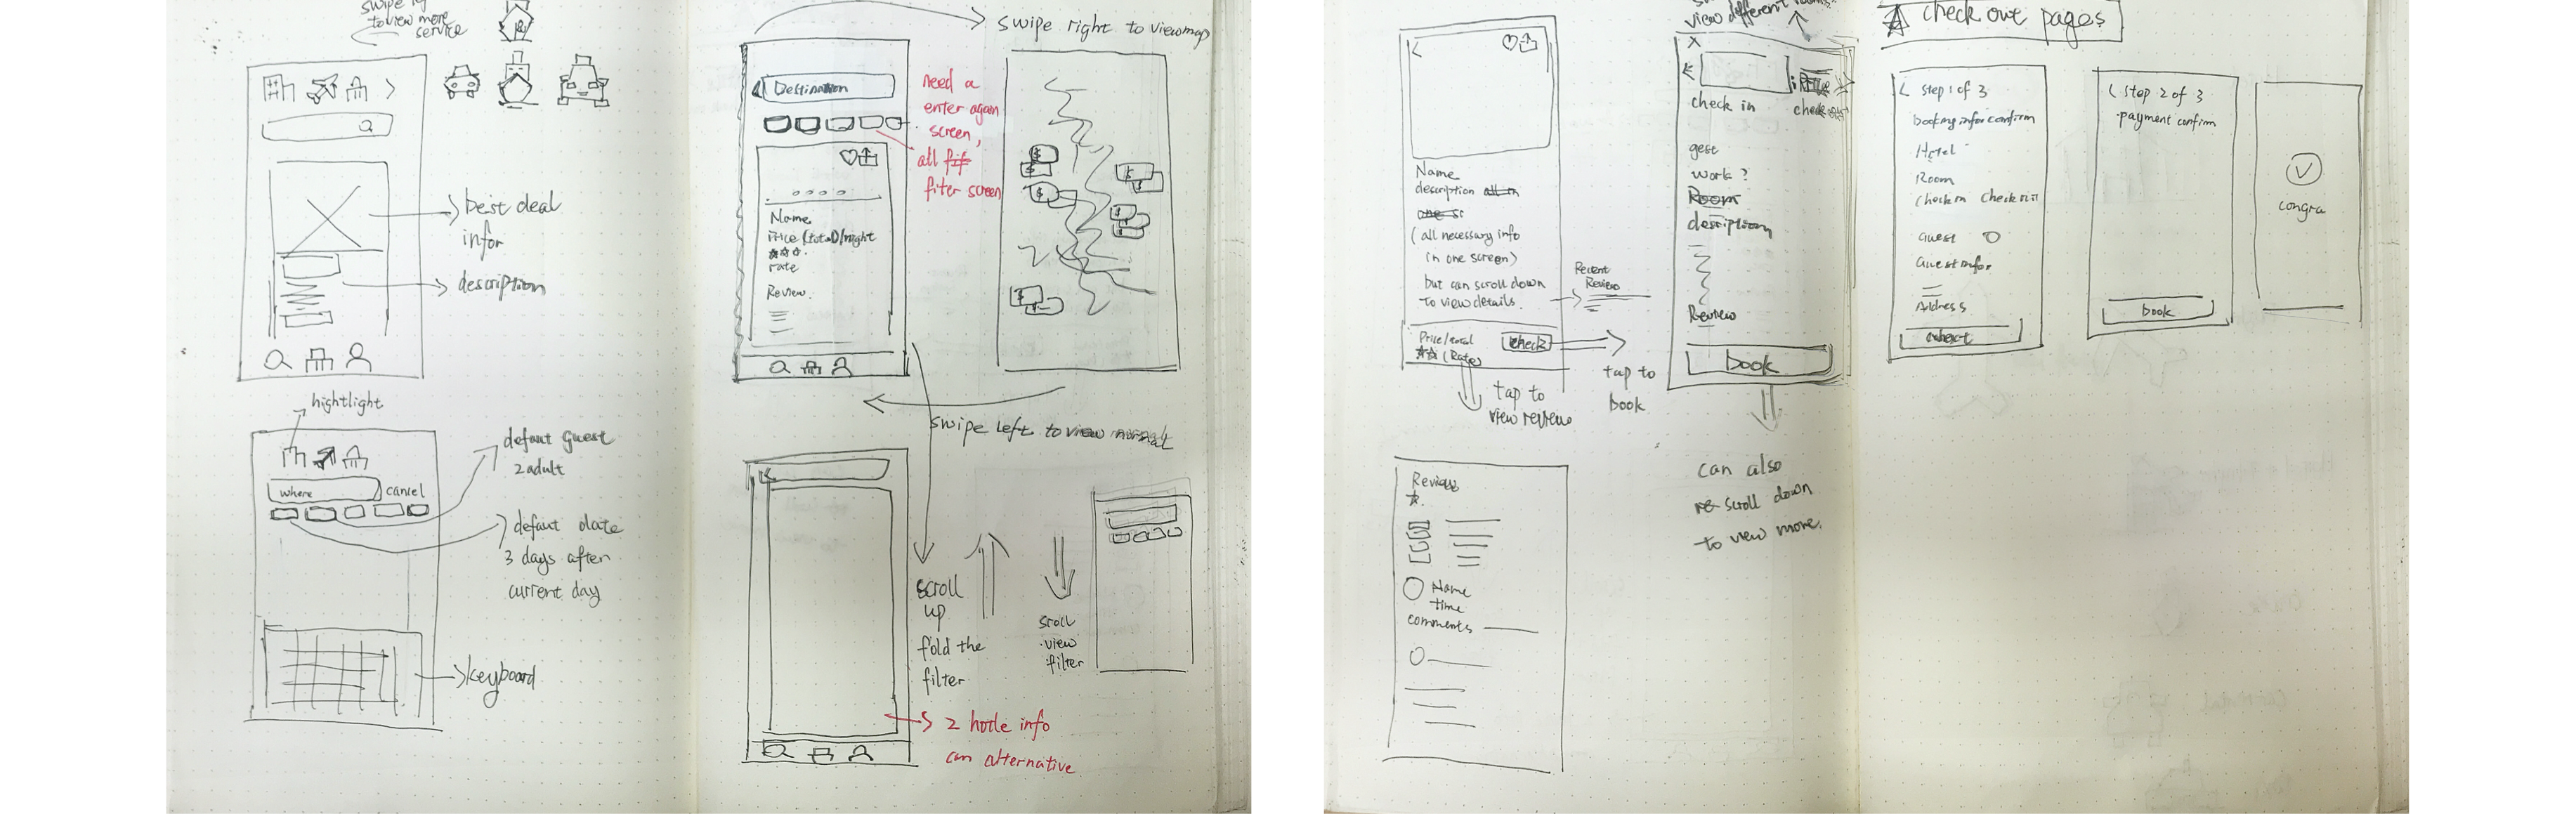 to view more
service
best deal
infor
description
hightlight
where
cancel
defaut guest
2 adult
defaut date
3 days after
current day
keyboard
swipe right to view map
Destination
need a
enter again
screen,
all
filter screen
Name
Price (total)/night
rate
Review
swipe left to view normal
scroll
up
fold the
filter
sroll
view
filter
2 hotle info
can alternative
view different rooms
Name
description
(all necessary info
in one screen)
but can scroll down
to view details
Recent
Review
Price/total
(Rate)
check
tap to
view review
tap to
book
check in
gest
work?
Room
description
Review
book
can also
scroll down
to view more.
Review
Name
time
comments
check out pages
step 1 of 3
booking infor confirm
Hotel
Room
check in check out
Guest
Guest infor
Address
step 2 of 3
payment confirm
book
congra